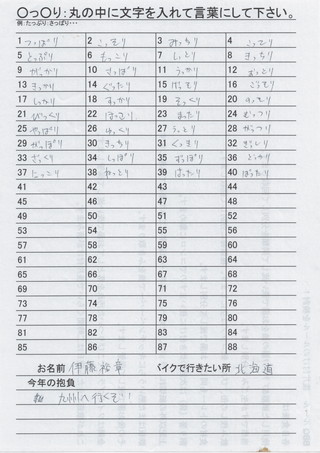 〇っ〇り：丸の中に文字を入れて言葉にして下さい。
例：たっぷり：さっぱり・・・
1 つっぱり 2 こっそり 3 みっちり 4 こってり
5 とっぷり 6 もっこり 7 しっとり 8 きっちり
9 がっかり 10 さっぱり 11 うっかり 12
13 きっかり 14 ぐったり 15 16
17 しっかり 18 すっかり 19 そっくり 20
21 びっくり 22 ほっそり 23 まったり 24 むっつり
25 やっぱり 26 ゆっくり 27 うっとり 28 がっつり
29 がっぽり 30 きっちり 31 ぐっすり 32
33 ざっくり 34 しっぽり 35 ずっぽり 36 どっかり
37 にっこり 38 ねっとり 39 ばったり 40 ぼったり
41 42 43 44
45 46 47 48
49 50 51 52
53 54 55 56
57 58 59 60
61 62 63 64
65 66 67 68
69 70 71 72
73 74 75 76
77 78 79 80
81 82 83 84
85 86 87 88
お名前 伊藤裕章 バイクで行きたい所 北海道
今年の抱負
九州へ行くぞ!!